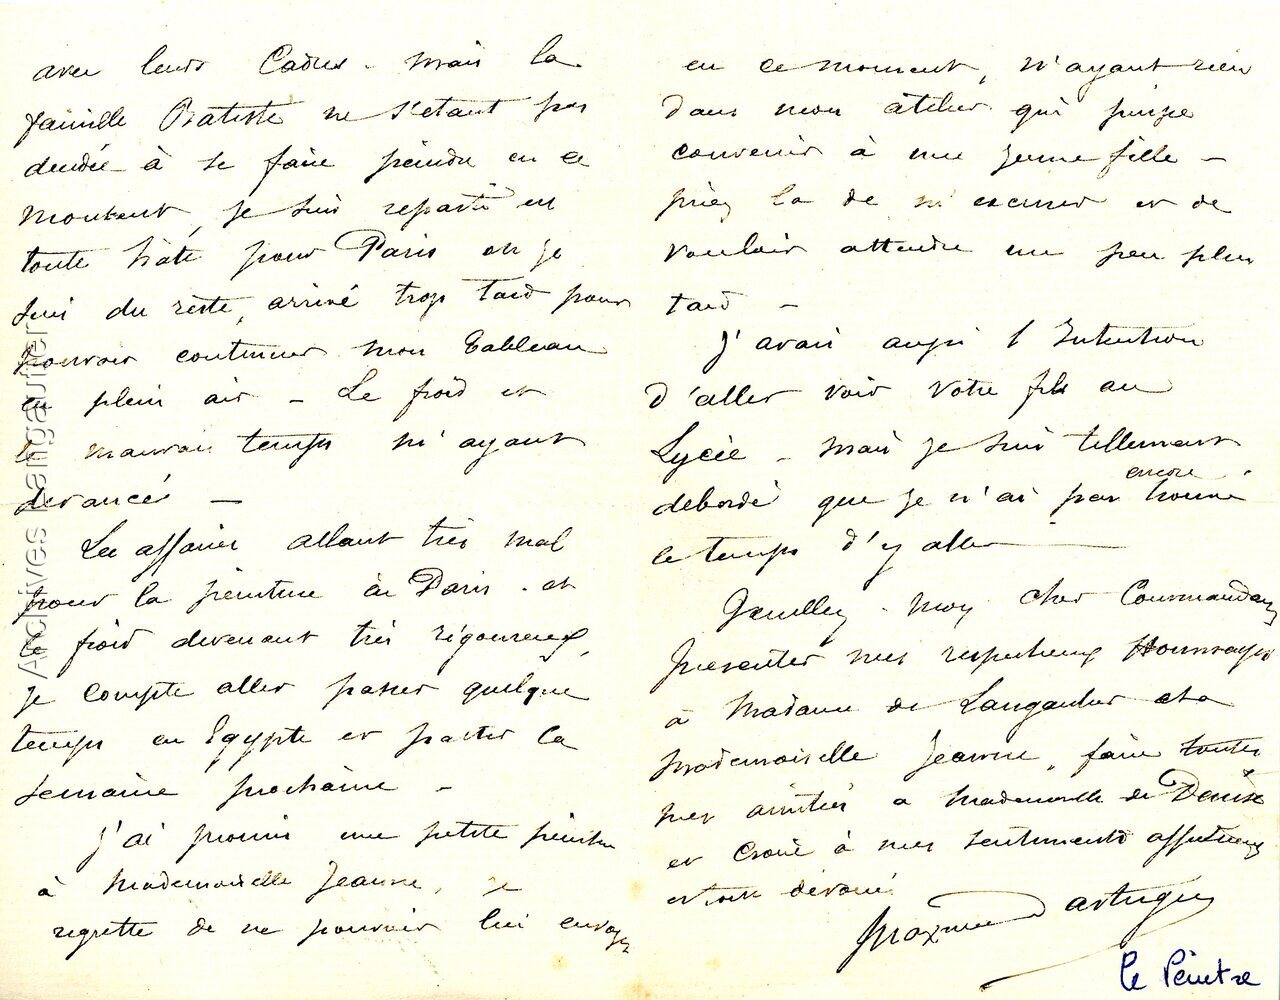 avec leurs Cadres - mais la
famille Batiste ne s'étant pas
décidée à se faire peindre en ce
moment, je suis reparti en
toute hâte pour Paris où je
suis du reste, arrivé trop tard pour
pouvoir continuer mon Tableau
en plein air - Le froid et
le mauvais temps m'ayant
devancé -
Les affaires allant très mal
pour la peinture à Paris - et
le froid devenant très rigoureux,
je compte aller passer quelque
temps en Egypte et partir la
semaine prochaine -
J'ai promis une petite peinture
à Mademoiselle Jeanne, je
regrette de ne pouvoir lui envoyer
en ce moment, n'ayant rien
dans mon atelier qui puisse
convenir à une jeune fille -
priez la de m'excuser et de
vouloir attendre un peu plus
tard -
J'avais aussi l'Intention
d'aller voir votre fils au
Lycée - mais je suis tellement
débordé que je n'ai pas encore trouvé
le temps d'y aller
Veuillez - moi cher Commandant
présenter mes respectueux Hommages
à Madame de Langautier et à
Mademoiselle Jeanne, faire toutes
mes amitiés à Mademoiselle de Denise
et croire à mes sentiments affectueux
et tout dévoué
Maxime Dastugue
le Peintre
Archives Langautier